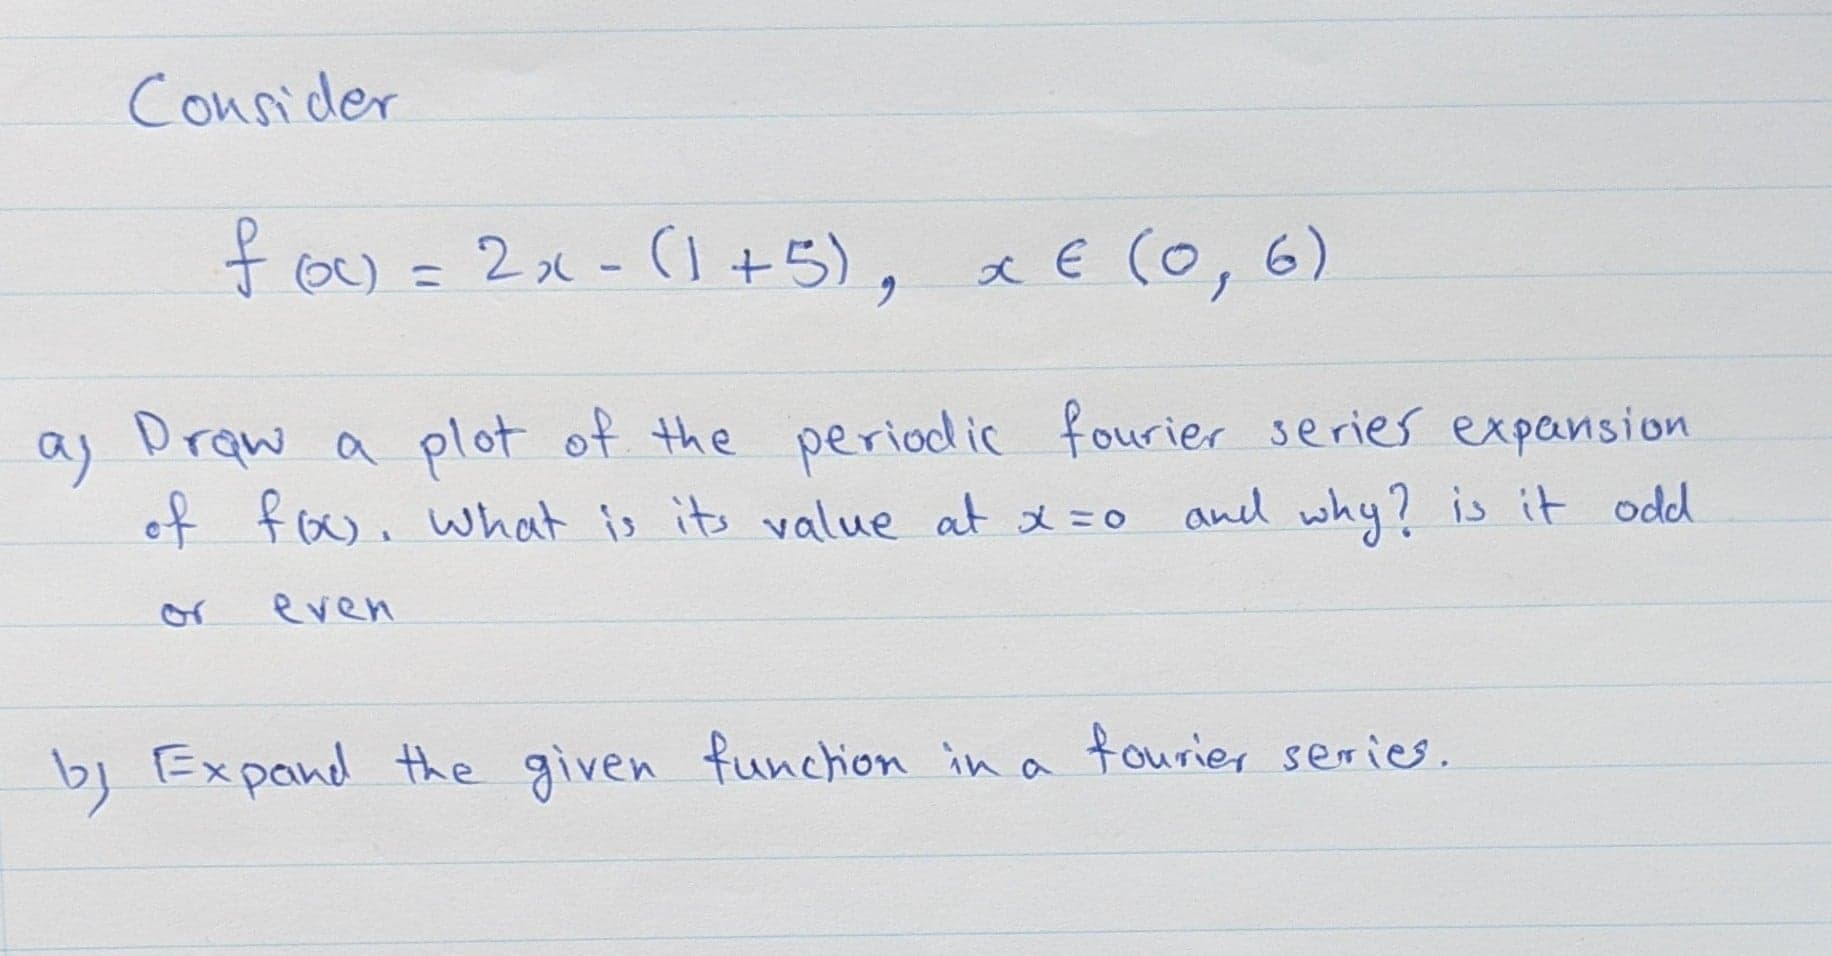 Consider
f(x) = 2x - (1+5), x ∈ (0, 6)
a) Draw a plot of the periodic fourier series expansion
of f(x). What is its value at x=0 and why? is it odd
or even
b) Expand the given function in a fourier series.